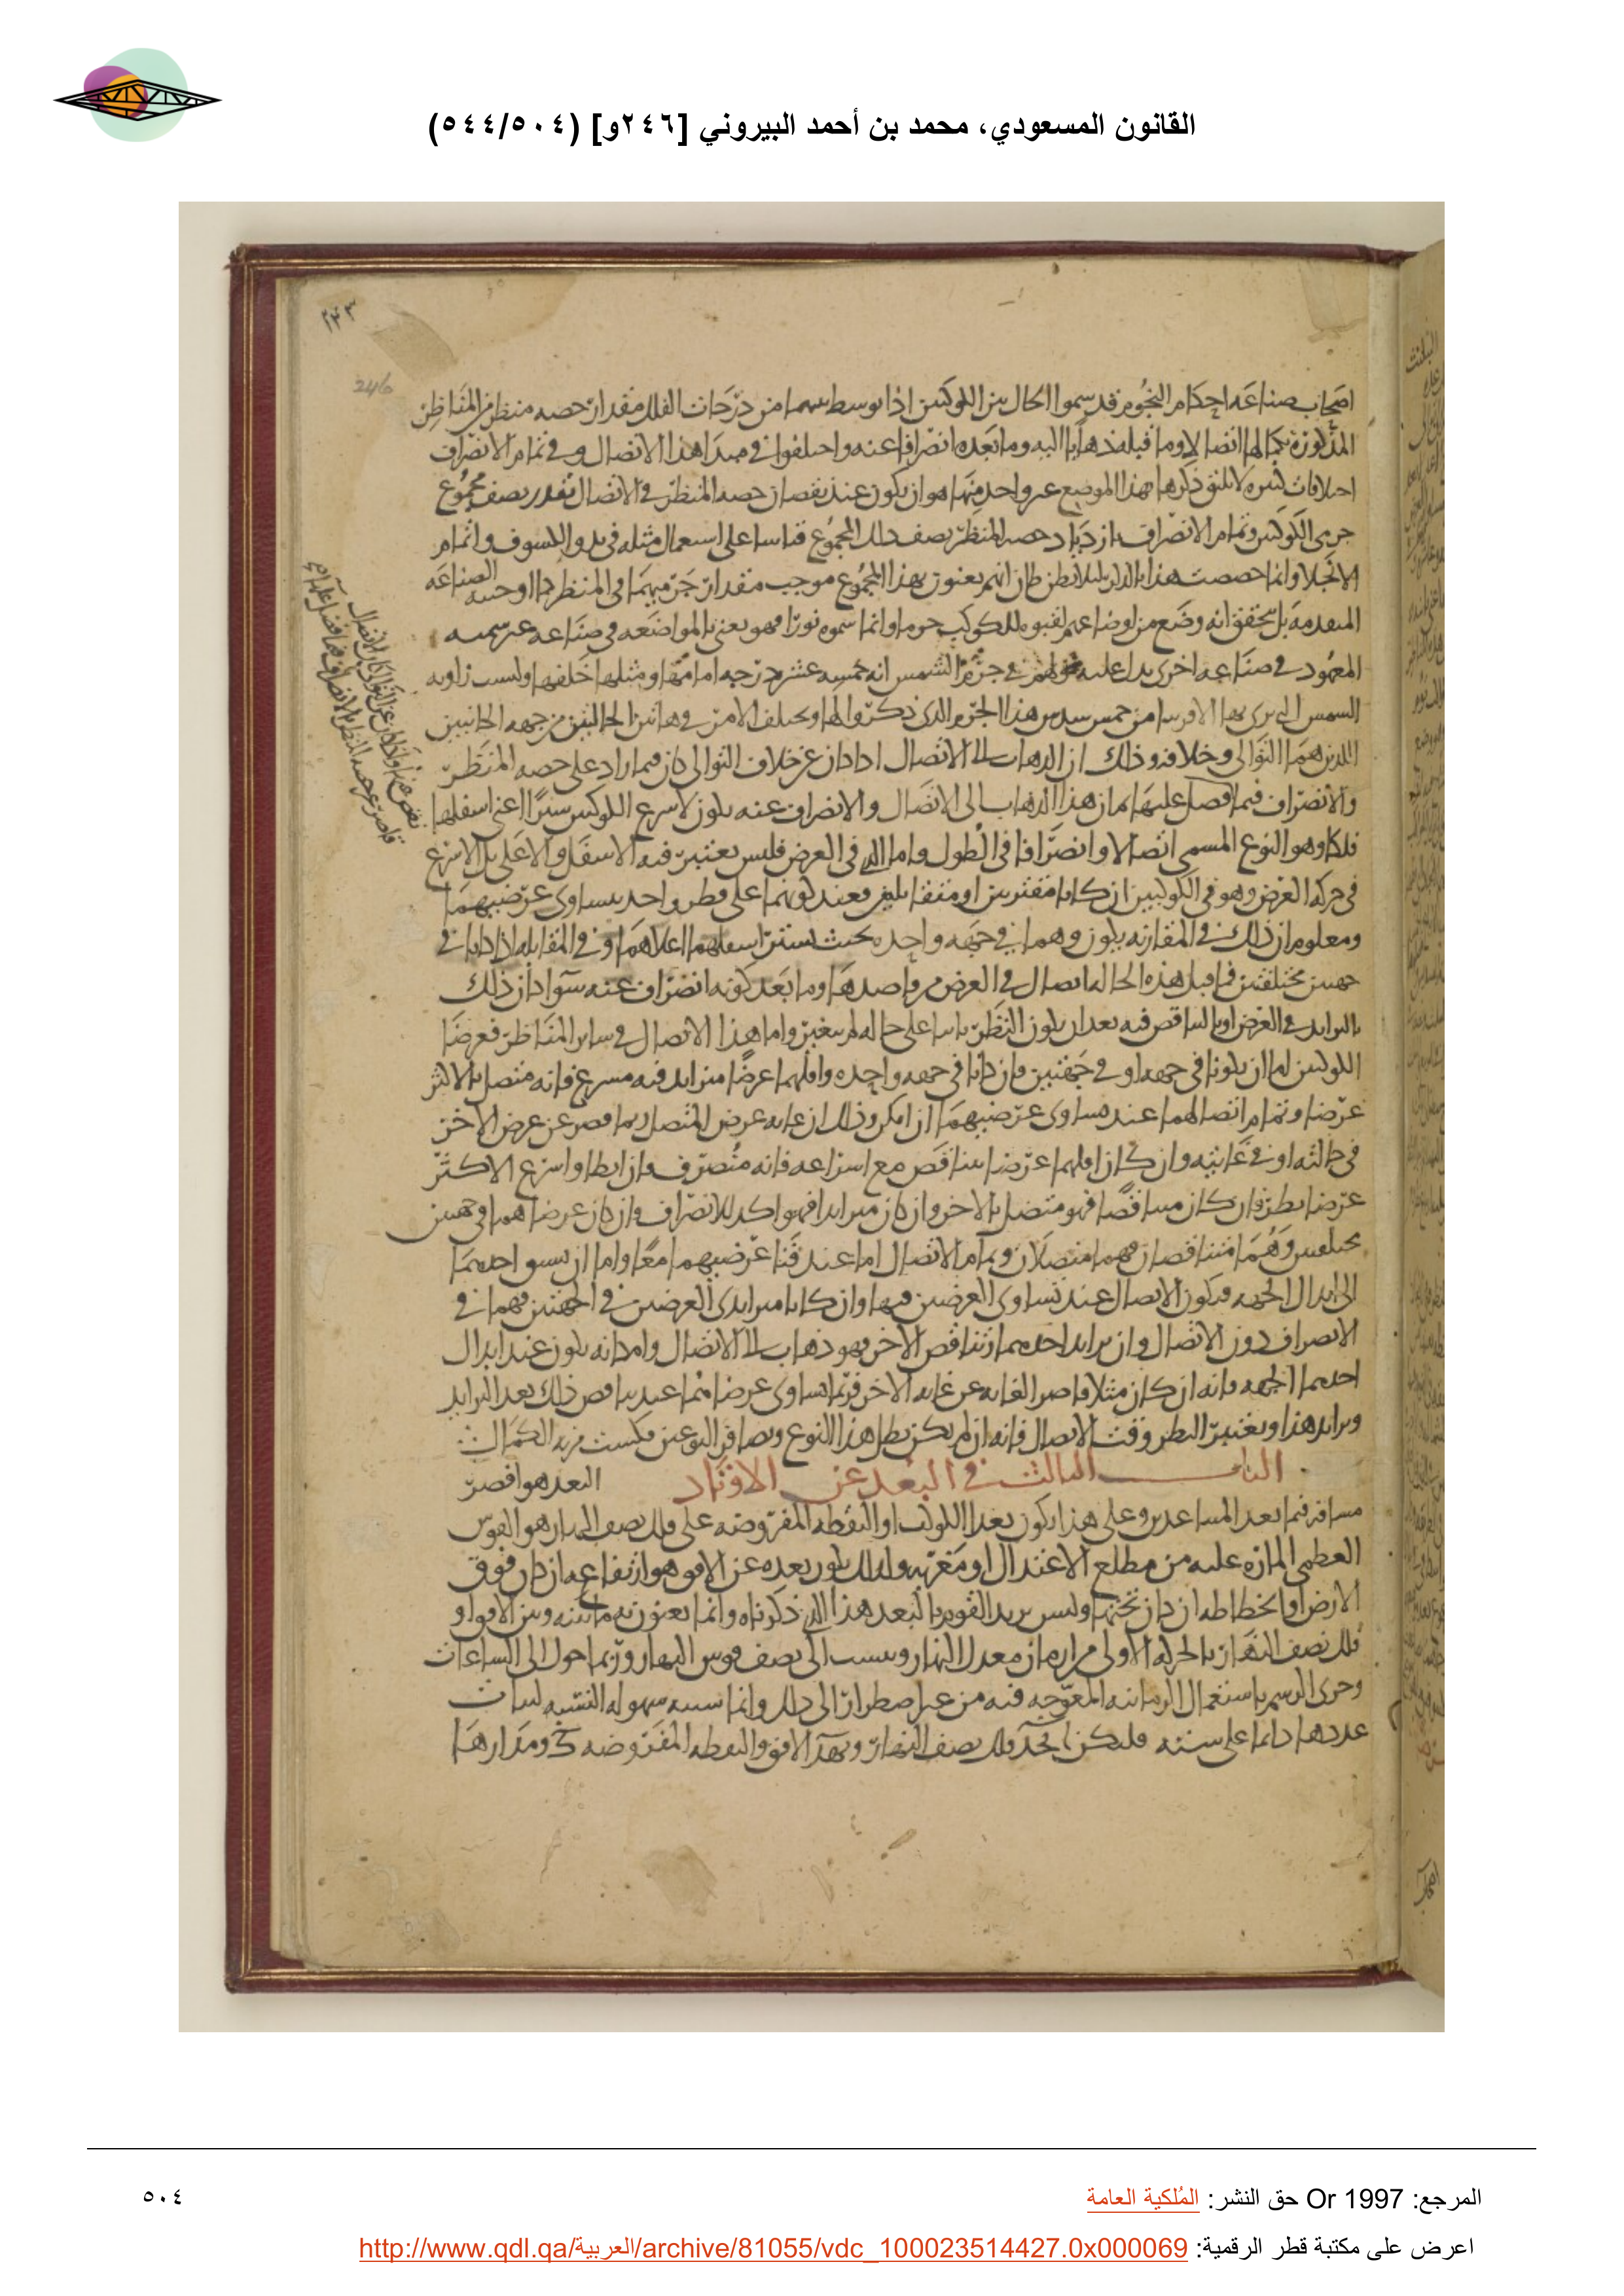 القانون المسعودي، محمد بن أحمد البيروني [٢٤٦و] (٥٠٤/٥٤٤)
٢٤٣
246
اصحاب صناعه احكام النجوم قد سموا الحال بين الكوكبين اذا توسط بينهما من درجات الفلك مقدار حصه منظر من المناظر
المذكورة بكمالها اتصالا وما قبله ذهابا اليه وما بعده انصرافا عنه واختلفوا في مبدا هذا الاتصال وفي تمام الانصراف
اختلافات كثيره لا يليق ذكرها بهذا الموضع غير واحد منها هو ان يكون عند نقصان حصه المنظر في الاتصال بقدر نصف مجموع
جرمي الكوكبين وتمام الانصراف بازدياد حصه المنظر نصف ذلك المجموع قياسا على استعمال مثله في بدو الكسوف واتمام
الانجلا وانما خصصت هذا بالذكر لئلا يظن ظان انهم يعنون بهذا المجموع موجب مقدار جرميهما في المنظر كما اوجبته الصناعه
المتقدمه بل يتحقق انه وضع من اوضاعهم لقبوه للكوكب جرما وانما سموه نورا فهو يعني بالمواضعه في صناعه غير سميه
المعهود في صناعه اخرى يدل عليه قولهم في جرم الشمس انه خمسه عشر درجه امامها ومثلها خلفها وليست زاويه
الشمس التي يرى بها الا قريبا من خمس سدس هذا الجرم الذي ذكروا لها ويختلف الامر في هاتين الحالتين من جهه الجانبين
اللذين هما التوالي وخلافه وذلك ان الذهاب الى الاتصال اذا كان عن خلاف التوالي كان فيما زاد على حصه المنظر
والانصراف فيما فضل عليها فان هذا الذهاب الى الاتصال والانصراف عنه يكون لاسرع الكوكبين سيرا اعني اسفلهما
فلكا وهو النوع المسمى اتصالا وانصرافا في الطول واما الذي في العرض فليس يعتبر فيه الاسفل والاعلى بل الاسرع
في حركه العرض وهو في الكوكبين ان كانا مقترنين او متقابلين فعند كونهما على قطر واحد يتساوى عرضيهما
ومعلوم ان ذلك في المقارنه يكون وهما في جهه واحده بحيث يستتر اسفلهما اعلاهما وفي المقابله اذا كانا في
جهتين مختلفتين فما قبل هذه الحاله اتصال في العرض من قاصدها وما بعد كونه انصراف عنه سوا كان ذلك
بالتزايد في العرض او بالتناقص فيه بعد ان يكون النظر ثابتا على حاله لم يتغير واما هذا الاتصال في ساير المناظر فعرضا
الكوكبين اما ان يكونا في جهه او في جهتين فان كانا في جهه واحده واقلهما عرضا متزايد فيه مسرع فانه متصل بالاكثر
عرضا وتمام اتصالهما عند تساوي عرضيهما ان امكن وذلك ان غايه عرض المتصل ربما قصر عن عرض الاخر
في حالته او في غايته وان كان اقلهما عرضا يتناقص مع اسراعه فانه منصرف وان ابطا واسرع الاكثر
عرضا نظر فان كان متناقصا فهو متصل بالاخر وان كان متزايدا فهو اكد للانصراف وان كان عرضاهما في جهتين
مختلفتين وهما متناقصان فهما متصلان وتمام الاتصال اما عند فنا عرضيهما معا واما ان يسبق احدهما
الى ابدال الجهه فيكون الاتصال عند تساوي العرضين فيها وان كانا متزايدي العرضين في الجهتين فهما في
الانصراف دون الاتصال وان تزايد احدهما وتناقص الاخر فهو ذهاب الى الاتصال وامكانه يكون عند ابدال
احدهما الجهه فانه ان كان مثلا قاصر الغايه عن غايه الاخر فربما تساوى عرضاهما عند تناقص ذلك بعد التزايد
وتزايد هذا ويعتبر النظر وقت الاتصال فانه ان لم يكن بطل هذا النوع وتضافر النوعين مكسب مزيه الكمال
الباب الثالث في البعد عن الاوتاد البعد هو اقصر
مسافه فيما بعد المتباعدين وعلى هذا يكون بعد الكوكب او النقطه المفروضه على فلك نصف النهار هو القوس
العظمى الماره عليه من مطلع الاعتدال او مغربه وكذلك يكون بعده عن الافق هو ارتفاعه ان كان فوق
الارض او انحطاطه ان كان تحتها وليس يريد القوم بالبعد هذا الذي ذكرناه وانما يعنون به ما بينه وبين الافق او
فلك نصف النهار بالحركه الاولى من ازمان معدل النهار وينسب الى نصف قوس النهار وربما حول الى الساعات
وجرى الرسم باستعمال الزمانيه المعوجه فيه من غير اضطرار الى ذلك وانما سببه سهوله النسبه لثبات
عددها دائما على سته فليكن ا ب ج د فلك نصف النهار و ب ه د الافق والنقطه المفروضه ح ومدارها
المرجع: Or 1997 حق النشر: المُلكية العامة
٥٠٤
اعرض على مكتبة قطر الرقمية: http://www.qdl.qa/العربية/archive/81055/vdc_100023514427.0x000069